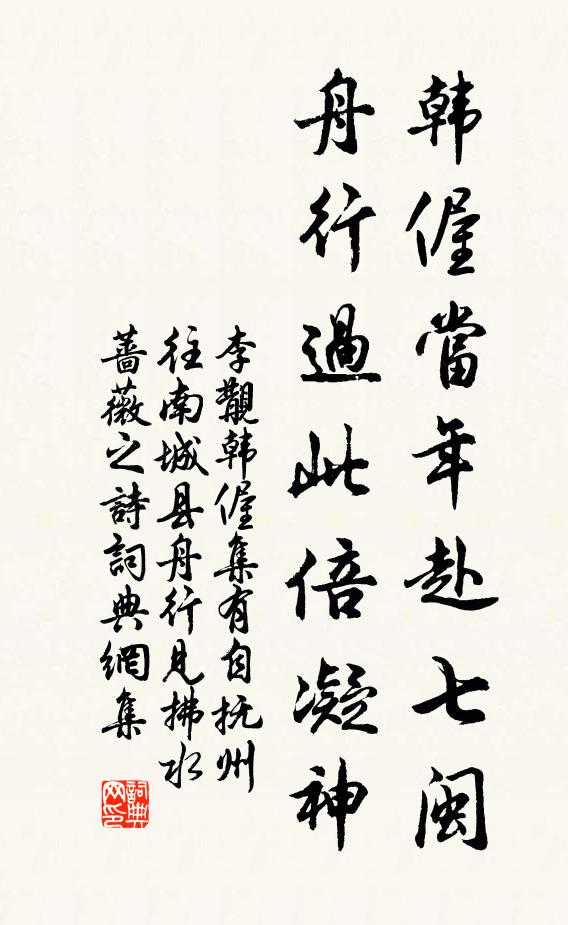 韩偓當年赴七闽
舟行過此倍凝神
李覯韩偓集有自抚州
往南城县舟行见拂水
蔷薇之詩詞典網集
詞典网印